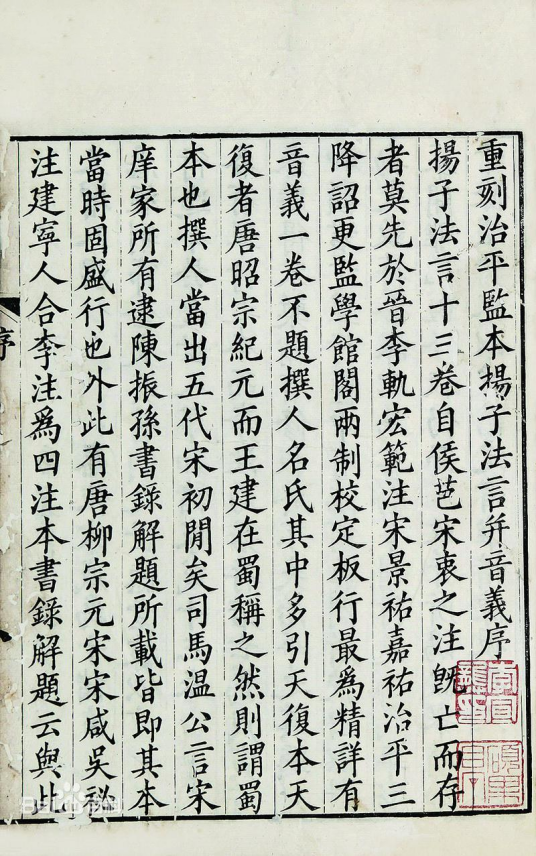 重刻治平監本揚子法言并音義序
揚子法言十三卷自侯芭宋衷之注旣亡而存
者莫先於晉李軌宏範注宋景祐嘉祐治平三
降詔更監學館閣兩制校定板行最爲精詳有
音義一卷不題撰人名氏其中多引天復本天
復者唐昭宗紀元而王建在蜀稱之然則謂蜀
本也撰人當出五代宋初閒矣司馬温公言宋
庠家所有逮陳振孫書錄解題所載皆卽其本
當時固盛行也外此有唐柳宗元宋宋咸吳祕
注建寧人合李注爲四注本書錄解題云與此
序
Baidu百科